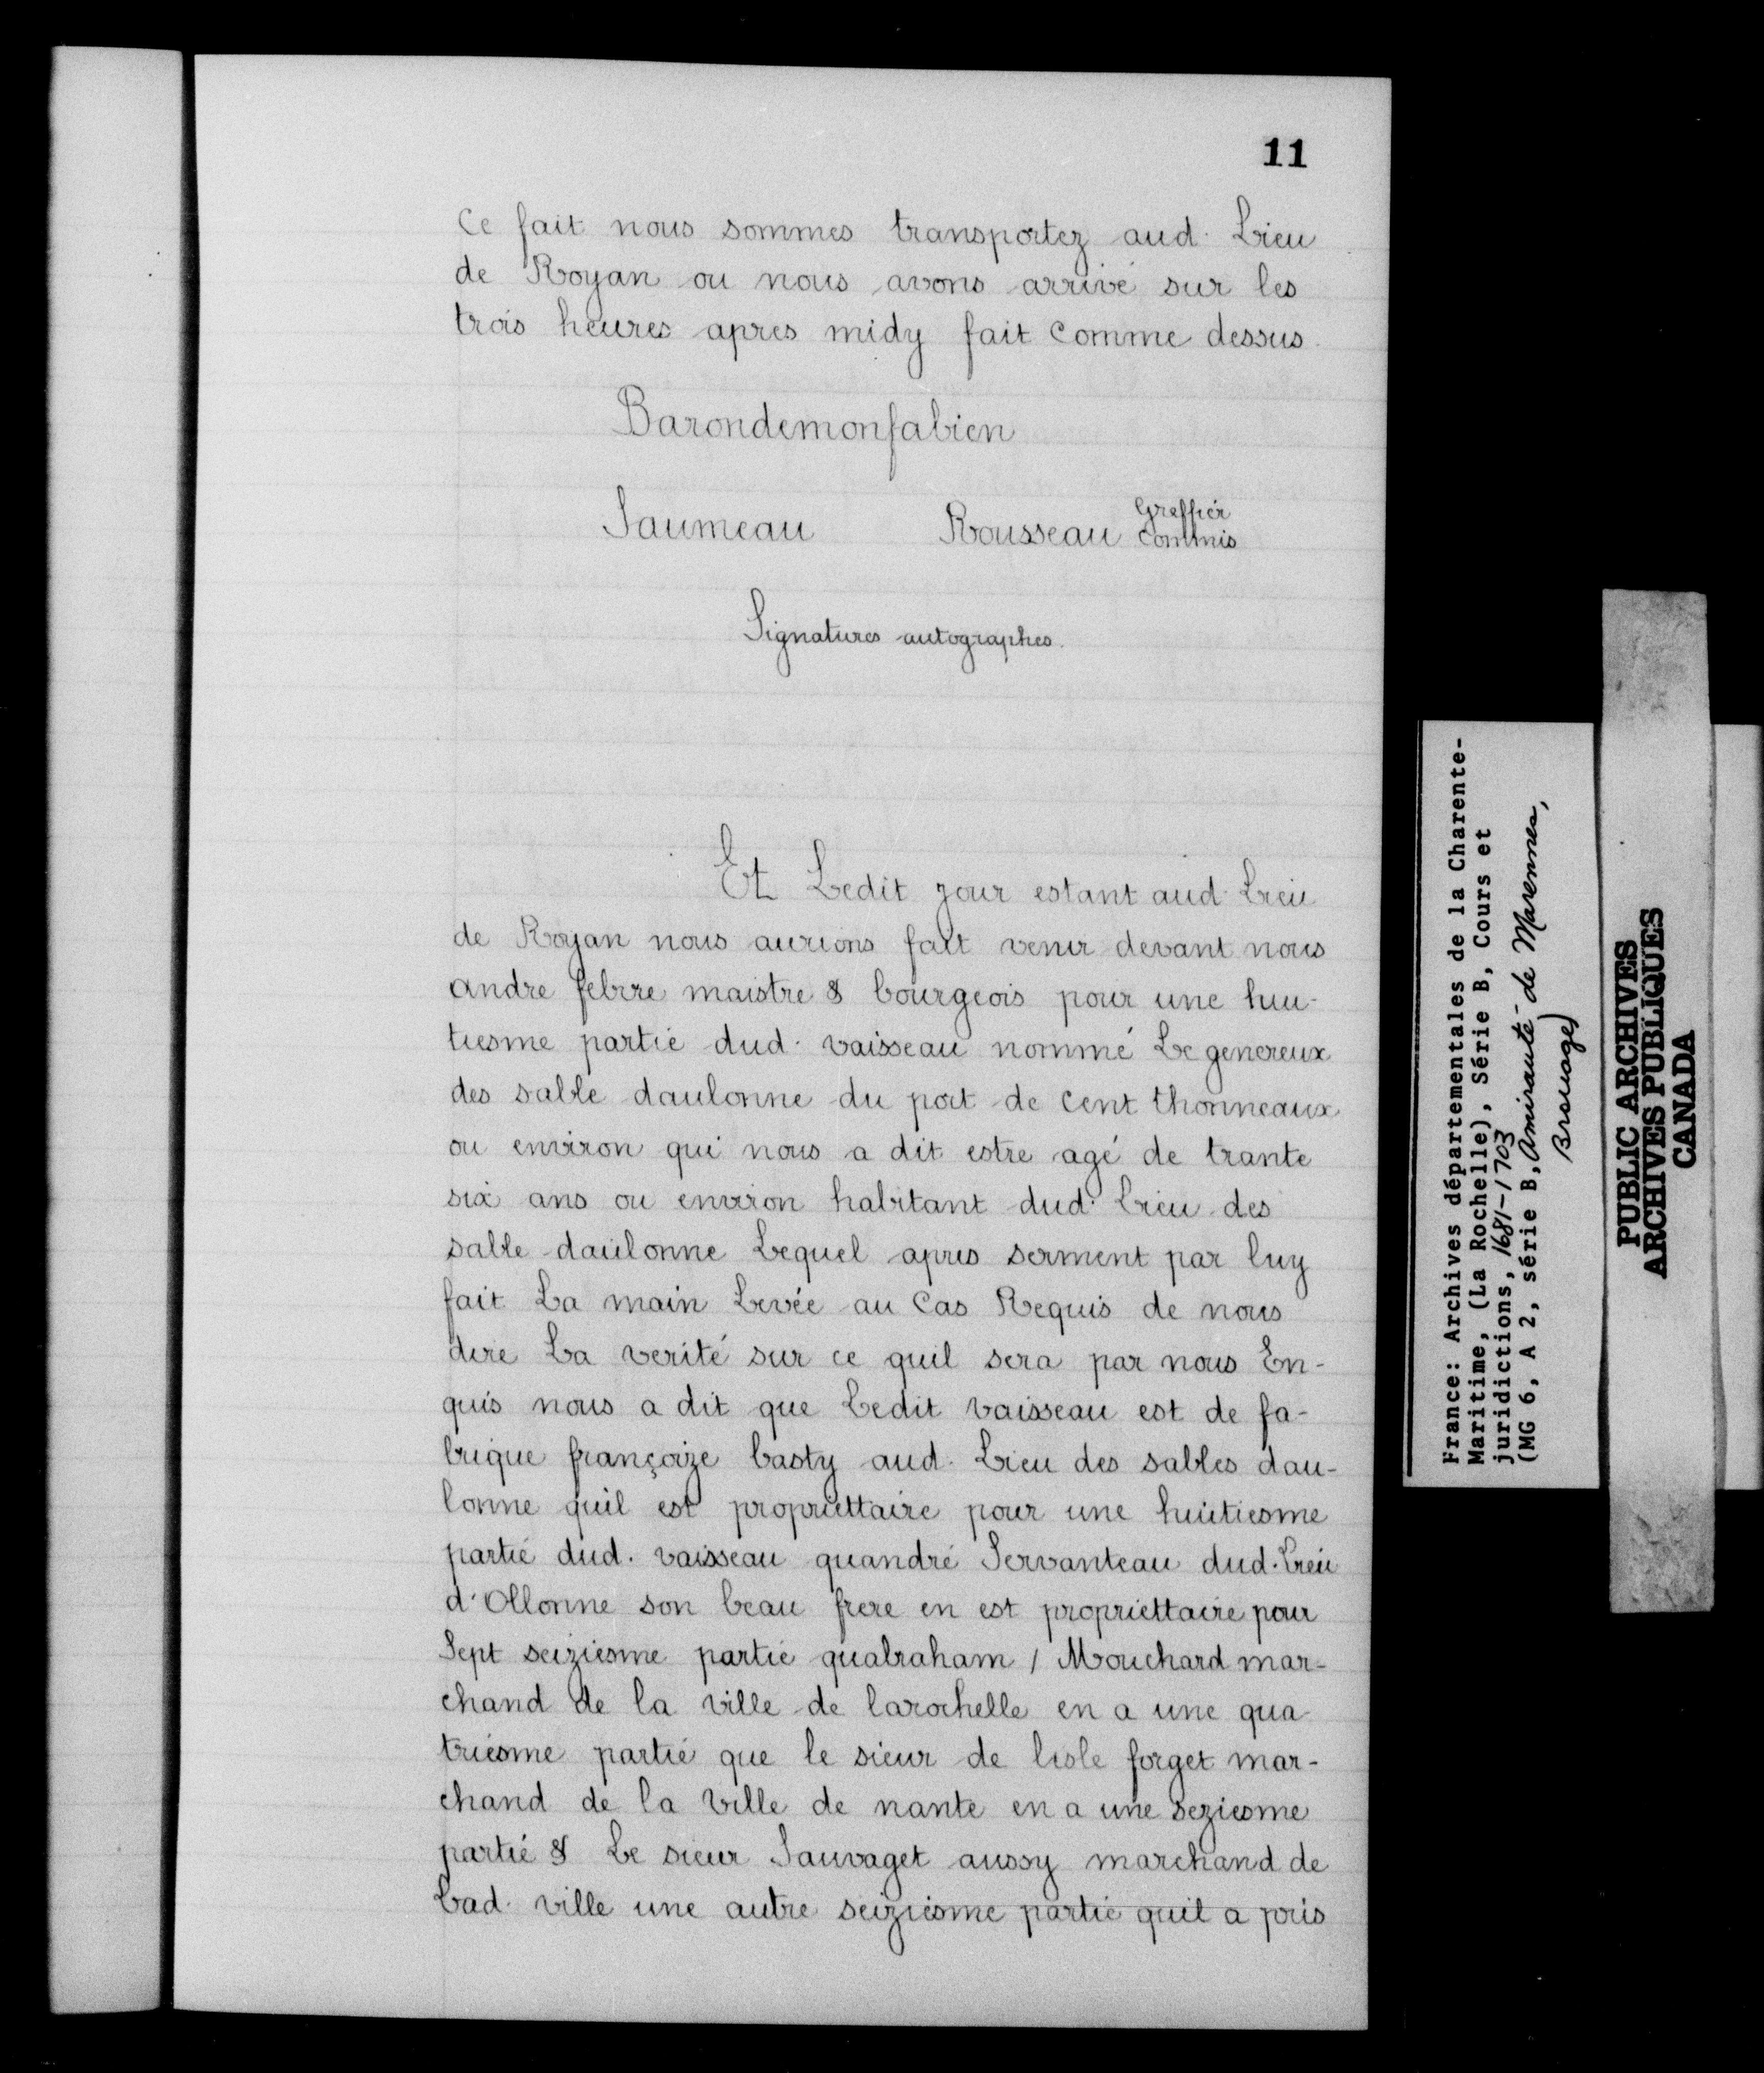 11
Ce fait nous sommes transportez aud. Lieu
de Royan ou nous avons arrivé sur les
trois heures apres midy fait Comme dessus.
Barondemonfabien
Saumeau Rousseau Greffier
commis
Signatures autographes.
Et Ledit jour estant aud. Lieu
de Royan nous aurions fait venir devant nous
andre febvre maistre & bourgeois pour une hui-
tiesme partie dud. vaisseau nommé Le genereux
des sable daulonne du port de Cent thonneaux
ou environ qui nous a dit estre agé de trante
six ans ou environ habitant dud. Lieu des
sable daulonne Lequel apres serment par luy
fait La main Levée au Cas Requis de nous
dire La verité sur ce quil sera par nous En-
quis nous a dit que Ledit vaisseau est de fa-
brique françoize basty aud. Lieu des sables dau-
lonne quil est propriettaire pour une huitiesme
partie dud. vaisseau quandré Servanteau dud. Lieu
d'Ollonne son beau frere en est propriettaire pour
Sept seiziesme partie quabraham / Mouchard mar-
chand de la ville de larochelle en a une qua
triesme partie que le sieur de lisle forget mar-
chand de la Ville de nante en a une seziesme
partie & Le sieur Sauvaget aussy marchand de
Lad. ville une autre seiziesme partie quil a pris
France: Archives départementales de la Charente-
Maritime, (La Rochelle), Série B, Cours et
juridictions, 1681-1703
(MG 6, A 2, série B, Amirauté de Marennes,
Brouage)
PUBLIC ARCHIVES
ARCHIVES PUBLIQUES
CANADA